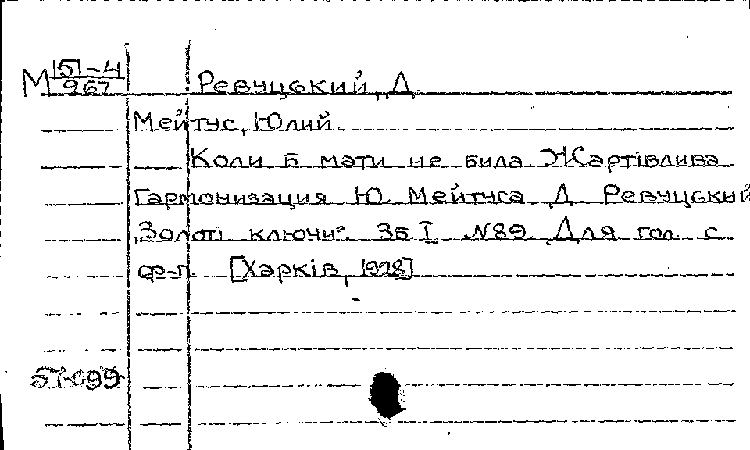 М 151-4/967 Ревуцький, Д
Мейтус, Юлий
Коли б мати не била Жартівлива
Гармонизация Ю. Мейтуса Д Ревуцький
„Золоті ключи". Зб I №89 Для гол. с
ф-п. [Харків, 1928]
57-699